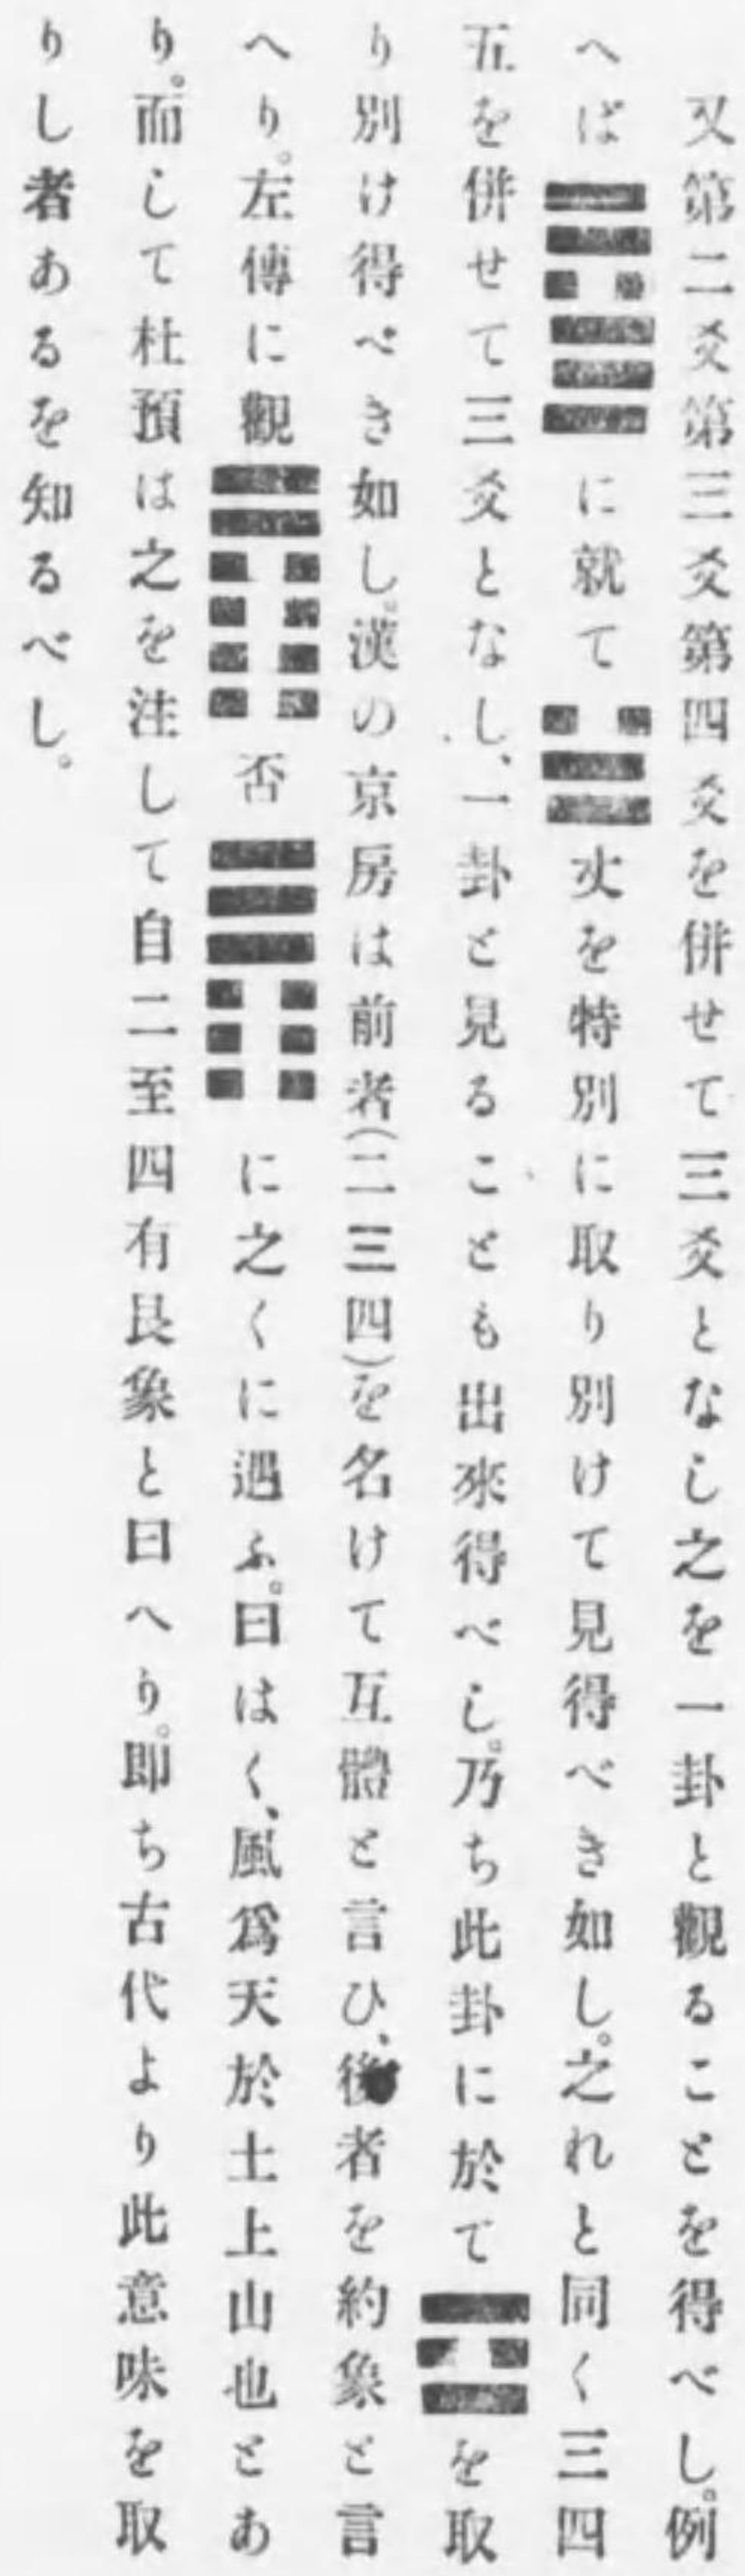 又第二爻第三爻第四爻を併せて三爻となし之を一卦と觀ることを得べし。例
へば䷈に就て☱丈を特別に取り別けて見得べき如し。之れと同く三四
五を併せて三爻となし、一卦と見ることも出來得べし。乃ち此卦に於て☲を取
り別け得べき如し。漢の京房は前者(二三四)を名けて互體と言ひ、後者を約象と言
へり。左傳に觀䷓否䷋に之くに遇ふ。曰はく、風爲天於土上山也とあ
り。而して杜預は之を注して自二至四有艮象と曰へり。即ち古代より此意味を取
りし者あるを知るべし。